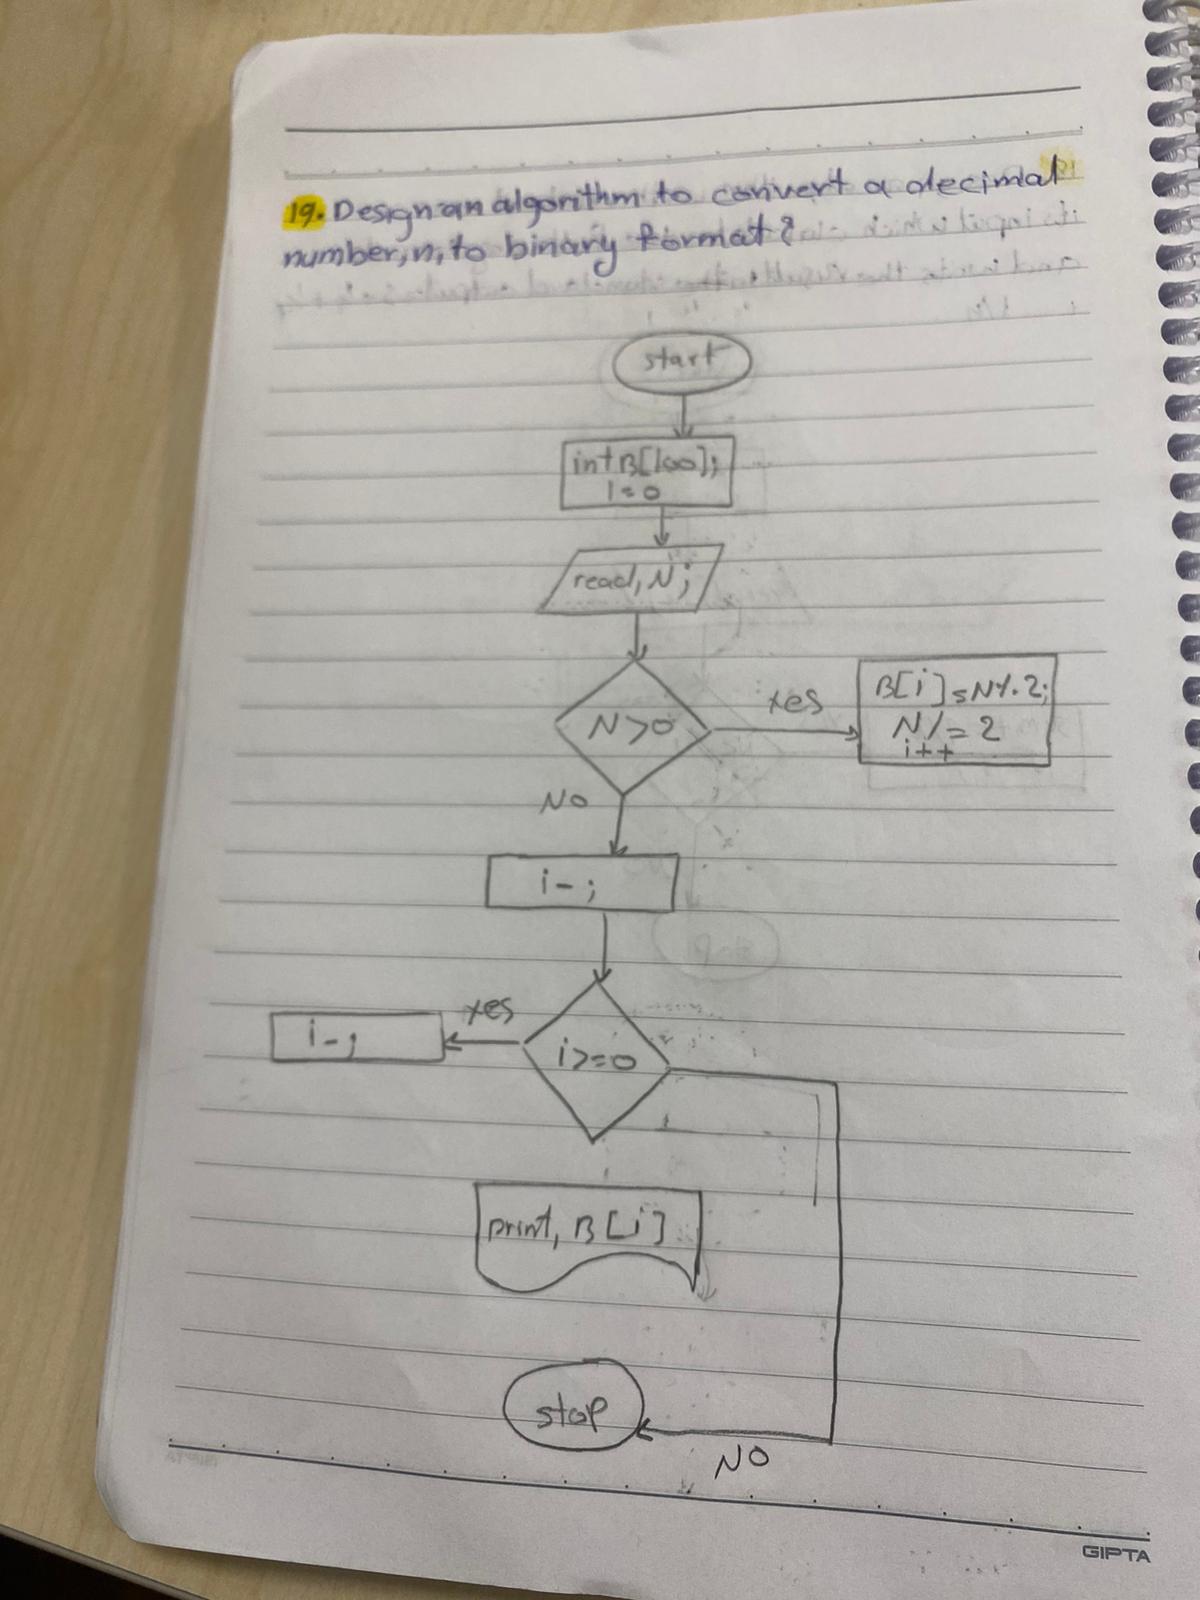 19. Design an algorithm to convert a decimal
number, n, to binary format?
start
int B[100];
i=0
read, N;
N>0
yes
B[i]=N%2;
N/=2
i++
NO
i-;
i>=0
yes
i-;
print, B[i]
stop
NO
GIPTA